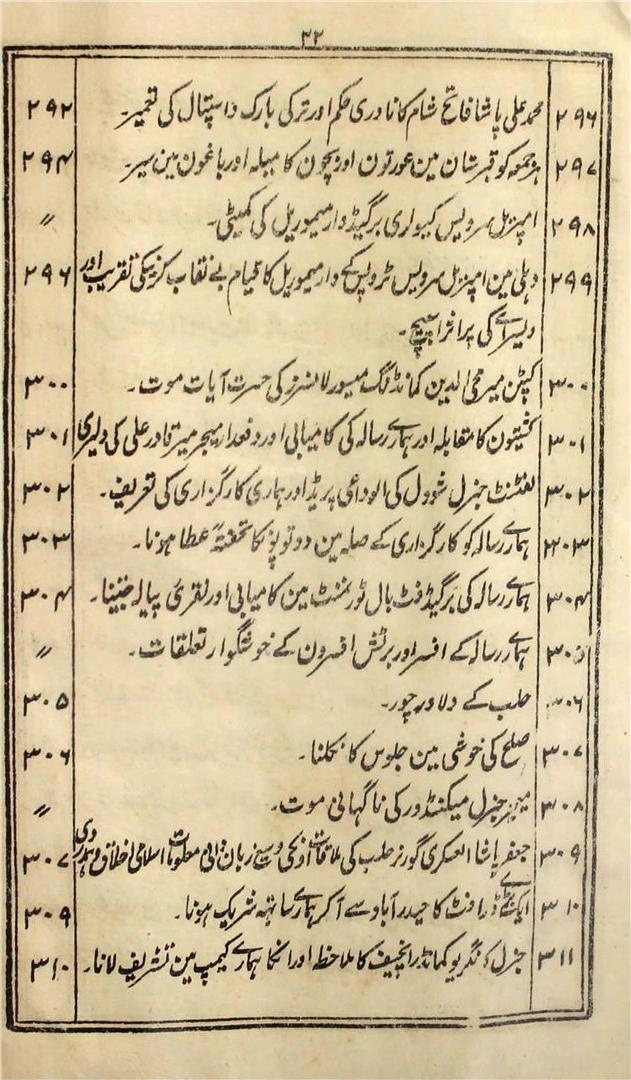 ۳۲
۲۹۶ محمد علی پاشا فاتح شام کا نادری حکم اور ترکی بارک و اسپتال کی تعمیر۔ ۲۹۲
۲۹۷ ہر جمعہ کو قبرستان مین عورتون اور بچون کا میلہ اور باغون مین سیر۔ ۲۹۴
۲۹۸ امپیریل سرویس کیولری برگیڈ وار میموریل کی کمیٹی۔ ״
۲۹۹ دہلی مین امپیریل سرویس ٹروپس کے وار میموریل کا قیام بے نقاب کرنیکی تقریب اور ۲۹۶
ویسراے کی پر اثر اسپیچ۔
۳۰۰ کپٹن میر محی الدین کمانڈنگ میسور لانسرز کی حسرت آیات موت۔ ۳۰۰
۳۰۱ کشتیون کا مقابلہ اور ہمارے رسالہ کی کامیابی اور دفعدار میجر میر قادر علی کی دلیری ۳۰۱
۳۰۲ لفٹنٹ جنرل شوول کی الوداعی پریڈ اور ہماری کارگزاری کی تعریف۔ ۳۰۲
۳۰۳ ہمارے رسالہ کو کارگزاری کے صلہ مین دو توپونکا تحفتہً عطا ہونا۔ ۳۰۳
۳۰۴ ہمارے رسالہ کی برگیڈ فٹ بال ٹورنمنٹ مین کامیابی اور نقرئی پیالہ جیتنا۔ ۳۰۴
۳۰۵ ہمارے رسالہ کے افسر اور برٹش افسرون کے خوشگوار تعلقات۔ ״
۳۰۶ حلب کے دلاور چور۔ ۳۰۵
۳۰۷ صلح کی خوشی مین جلوس کا نکلنا۔ ۳۰۶
۳۰۸ میجر جنرل میکنڈور کی ناگہانی موت۔ ״
۳۰۹ جعفر پاشا العسکری گورنر حلب کی ملاقات اونکی وسیع زبان دانی معلومات اسلامی اخلاق و ہمدردی ۳۰۷
۳۱۰ ایک بڑے ڈرافٹ کا حیدرآباد سے آکر ہمارے ساتہہ شریک ہونا۔ ۳۰۹
۳۱۱ جنرل کانگریو کمانڈر انچیف کا ملاحظہ اور انکا ہمارے کیمپ مین تشریف لانا۔ ۳۱۰